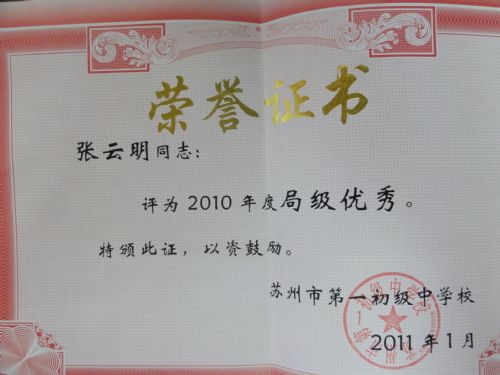 荣誉证书
张云明同志：
评为2010年度局级优秀。
特颁此证，以资鼓励。
苏州市第一初级中学校
2011年1月